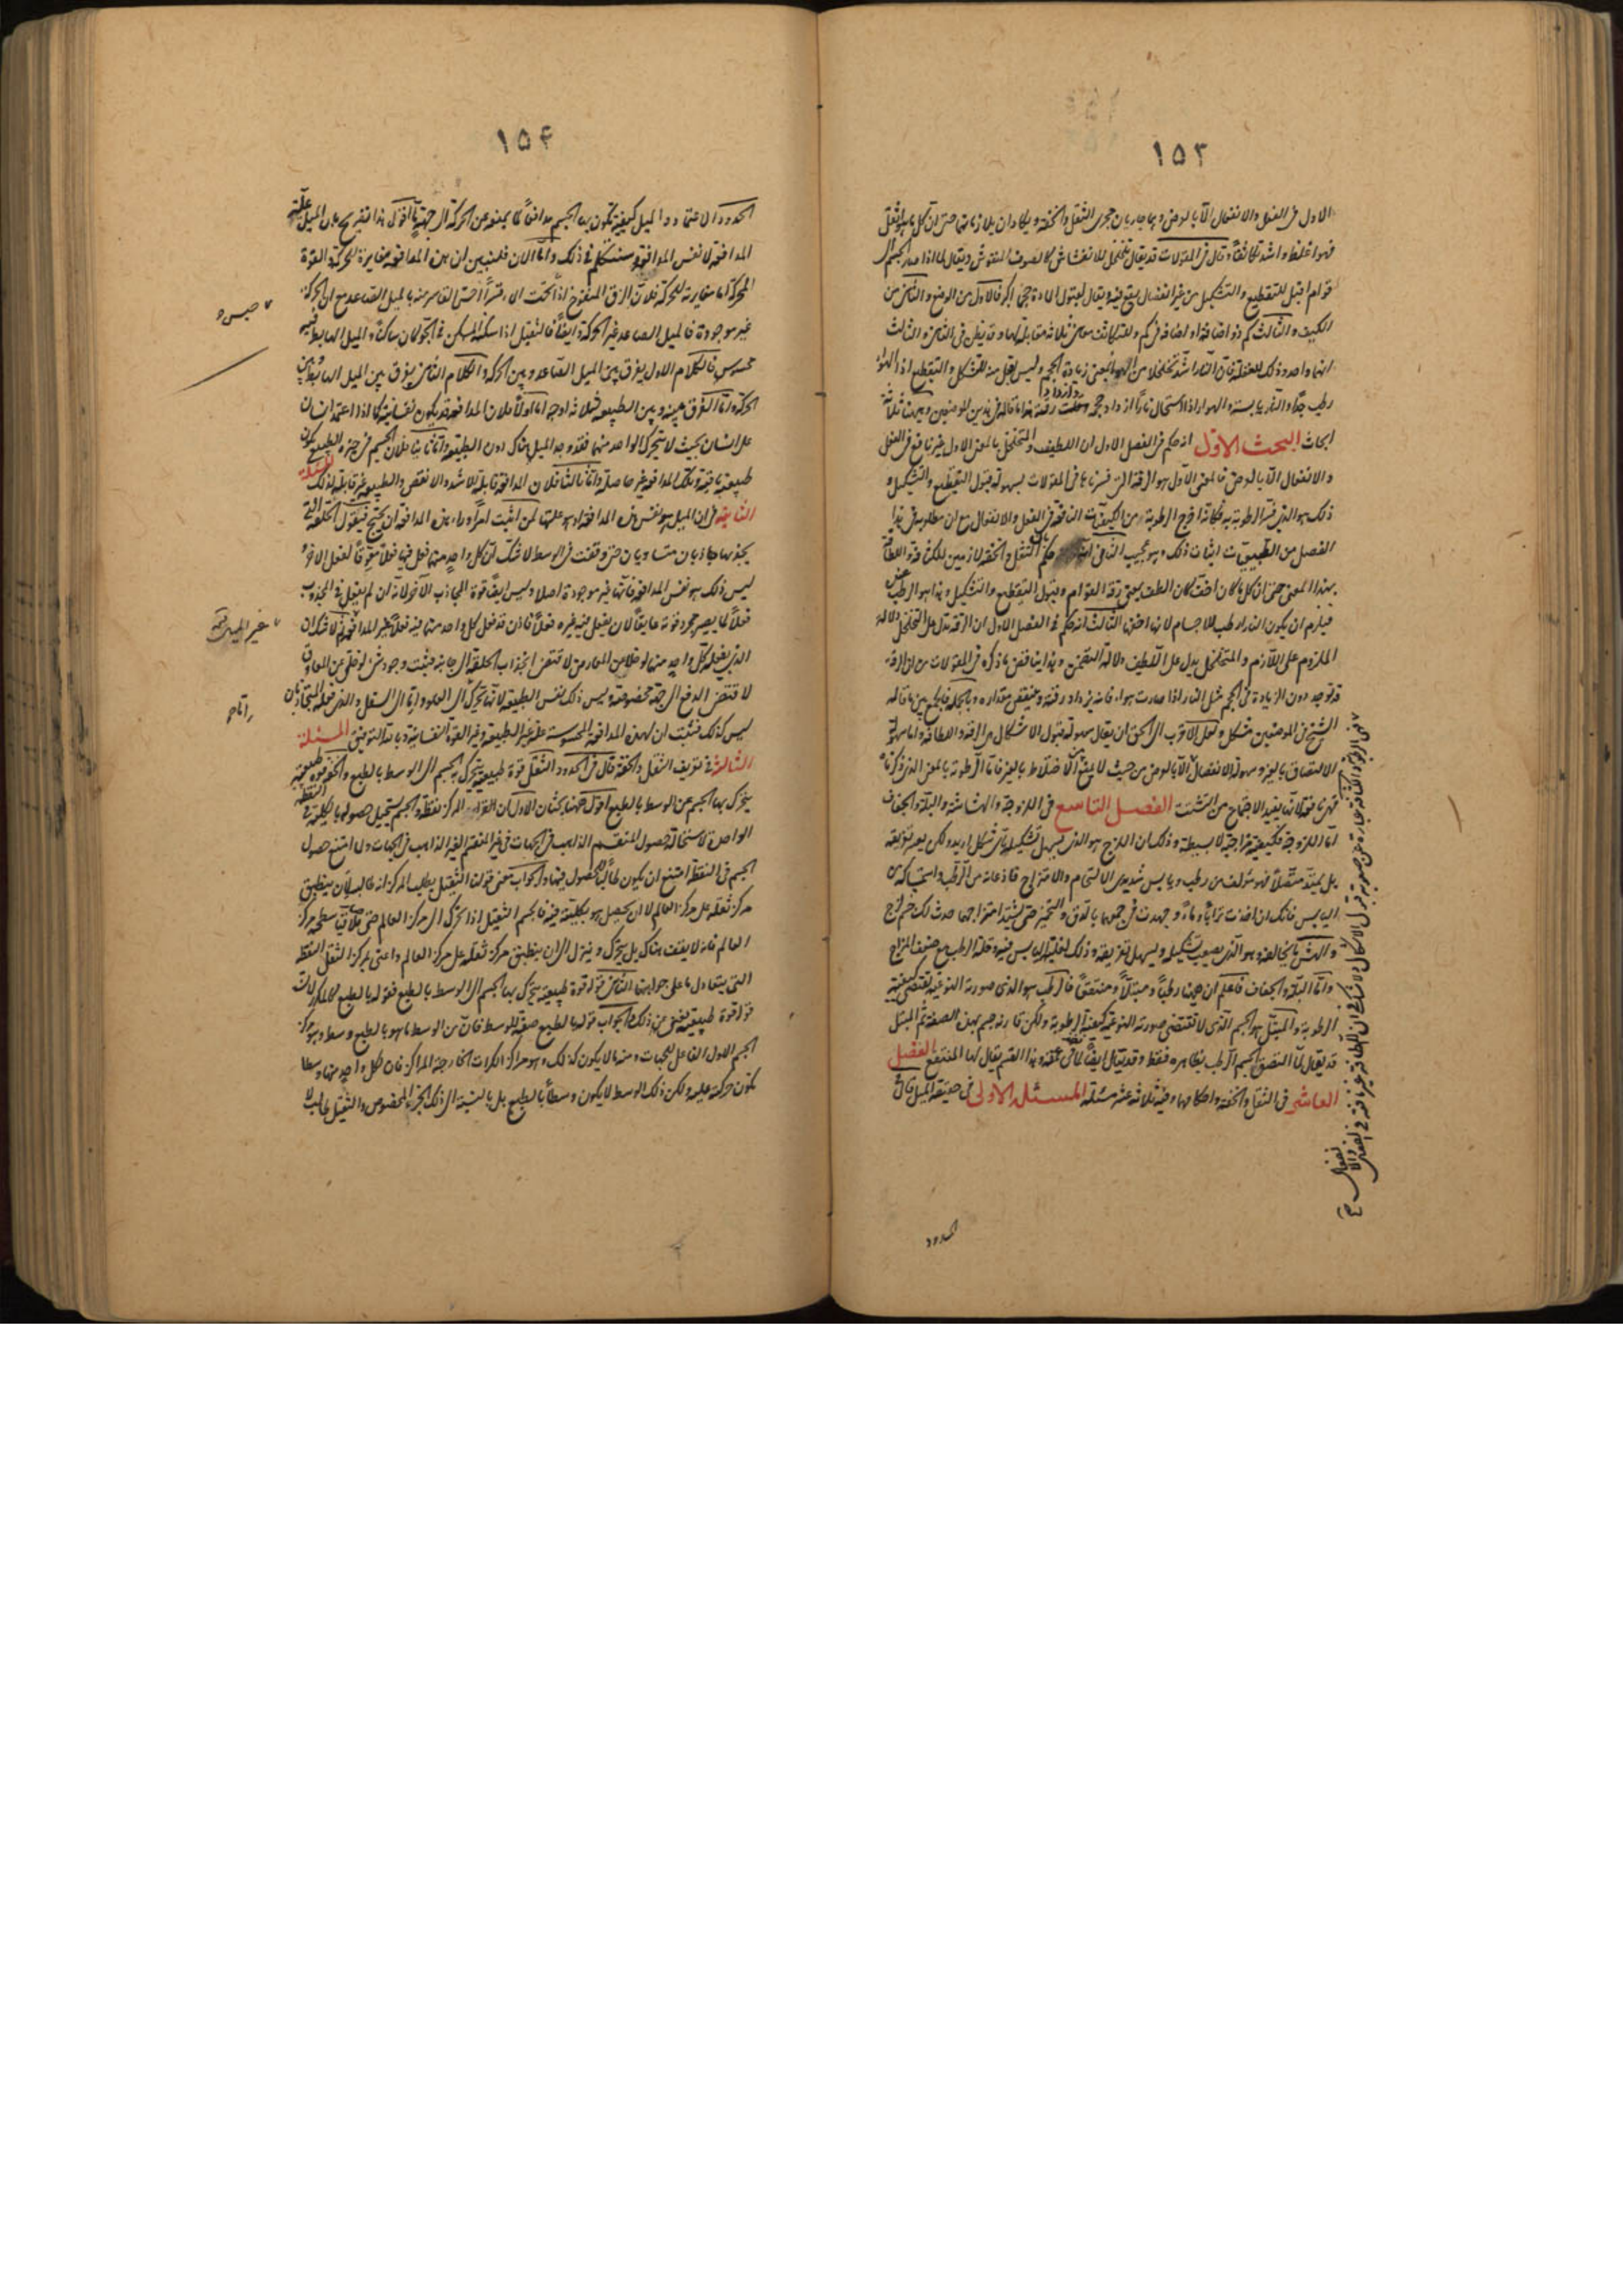 ١٥٣
الاول فى الفعل والانفعال الا بالعرض وهما جاريان مجرى الثقل والخفة ويكادان يلازمانهما حتى ان كل ما هو اثقل
فهو اغلظ واشد تكاثفا وقال فى المقولات قد يقال تخلخل للانتفاش كالصوف المنفوش ويقال لما اذا صار الجسم الى
قوام اقبل للتقطيع والتشكيل من غير انفصال يقع فيه ويقال لقبول المادة حجما اكبر فالاول من الوضع والثانى من
الكيف والثالث كم ذو اضافة او اضافة فى كم وللتكاثف معان ثلاثة مقابلة لها وقد يظن فى الثانى والثالث
انهما واحد وذلك للغفلة فان النار اشد تخلخلا من الهواء بمعنى زيادة الحجم وليس اقبل منه للتشكل والتقطيع اذ الهواء
رطب جدا والنار يابسة والهواء اذا استحال نارا ازداد حجمه وازداد رقة هذا ما قاله فى هذين الموضعين وههنا ثلاثة
ابحاث البحث الاول انه حكم فى الفصل الاول ان اللطيف والتخلخل بالمعنى الاول غير نافع فى الفعل
والانفعال الا بالعرض فالمعنى الاول هو الرقة التى فسرناها فى المقولات بسهولة قبول التقطيع والتشكيل و
ذلك هو الذى فسر الرطوبة به فكانه اخرج الرطوبة من الكيفيات النافعة فى الفعل والانفعال مع ان مطلوبه فى هذا
الفصل من الطبيعيات اثبات ذلك وهو عجيب الثانى انه حكم بان الثقل والخفة لازمين للكثافة واللطافة
بهذا المعنى حتى ان كل ما كان اخف كان الطف بمعنى رقة القوام وقبول التقطيع والتشكيل وهذا هو الرطب عنده
فيلزم ان يكون النار ارطب الاجسام لانها اخفها الثالث انه حكم فى الفصل الاول ان الرقة تدل على التخلخل دلالة
الملزوم على اللازم والمتخلخل يدل على اللطيف دلالة التضمن وهذا يناقض ما ذكره فى المقولات من ان الرقة
قد توجد دون الزيادة فى الحجم مثل النار اذا صارت هواء فانه يزداد رقة وينقص مقداره وبالجملة فالجمع بين ما قاله
الشيخ فى الموضعين مشكل ولعل الاقرب الى الحق ان يقال سهولة قبول الاشكال هى الرقة واللطافة واما سهولة
الالتصاق بالغير وسهولة الانفصال
فهى نافعة لانها يفيد الاجتماع من التشتت الفصل التاسع فى اللزوجة والهشاشة والبلة والجفاف
اما اللزوجة فكيفية مزاجية لا بسيطة وذلك ان اللزج هو الذى يسهل تشكيله باى شكل اريد ولكن يعسر تفريقه
بل يمتد متصلا فهو مؤلف من رطب ويابس شديدى الالتحام والامتزاج فاذعانه من الرطب واستمساكه من
اليابس فانك ان اخذت ترابا وماء وجهدت فى جمعهما بالدق والتخمير حتى يشتد امتزاجهما حدث لك جسم لزج
والهش ما يخالفه وهو الذى يصعب تشكيله ويسهل تفريقه وذلك لغلبة اليابس فيه وقلة الرطب مع ضعف المزاج
واما البلة والجفاف فاعلم ان ههنا رطبا ومبتلا ومنتقعا فالرطب هو الذى صورته النوعية تقتضى كيفية
الرطوبة والمبتل هو الجسم الذى لا تقتضى صورته النوعية كيفية الرطوبة ولكن قارنه جسم بهذه الصفة ثم المبتل
قد يقال لما التصق الجسم الرطب بظاهره فقط وقد يقال ايضا لما فى عمقه وهذا القسم يقال لها المنتقع الفصل
العاشر فى الثقل والخفة واحكامهما وفيه ثلاثة عشر مسئلة المسئلة الاولى فى حقيقة الميل قال فى
الحدود
١٥٤
الحدود الاعتماد والميل كيفية يكون بها الجسم مدافعا لما يمنعه عن الحركة الى جهة ما اقول هذا تصريح بان الميل علة
المدافعة لا نفس المدافعة وسنتكلم فى ذلك واما الان فلنبين ان هذه المدافعة مغايرة للحركة والقوة
المحركة اما مغايرته للحركة فلان الزق المنفوخ اذا تحت الماء قسرا احس القاسر منه بالميل الصاعد مع ان الحركة
غير موجودة فالميل الصاعد غير الحركة وايضا فالثقيل اذا سكنه المسكن فى الجو كان ساكنا والميل الهابط فيه
محسوس فالكلام الاول يفرق بين الميل الصاعد وبين الحركة والكلام الثانى يفرق بين الميل الهابط وبين
الحركة واما الفرق بينه وبين الطبيعة فلثلاثة اوجه اما اولا فلان المدافعة قد يكون نفسانية كما اذا اعتمد انسان
على انسان بحيث لا يتحرك الواحد منهما فقد وجد الميل هناك دون الطبيعة واما ثانيا فلان الجسم فى حيزه الطبيعى يكون
طبيعته باقية وتلك المدافعة غير حاصلة واما ثالثا فلان المدافعة قابلة للاشد والانقص والطبيعة غير قابلة لذلك المسئلة
الثانية فى ان الميل هو نفس هذه المدافعة او هو علتها لمن اثبت امرا وراء هذه المدافعة ان يحتج فيقول الحلقة التى
يجذبها جاذبان متساويان حتى وقفت فى الوسط لا شك ان كل واحد منهما فعل فيها فعلا معوقا لفعل الاخر و
ليس ذلك هو نفس المدافعة فانها غير موجودة اصلا وليس ايضا قوة الجاذب الآخر لانه ان لم يفعل فى المجذوب
فعلا لما يصير مجرد قوته عايقا لان يفعل فيه غيره فعلا فاذن قد فعل كل واحد منهما فيه فعلا غير المدافعة ثم لا شك ان
الذى يفعله كل واحد منهما لو خلا عن المعارض لاقتضى انجذاب الحلقة الى جانبه فثبت وجود شىء لو خلى عن المعاوق
لاقتضى الدفع الى جهة مخصوصة وليس ذلك نفس الطبيعة لانها تحرك الى العلو او الى السفل والذى فعله المتجاذبان
ليس كذلك فثبت ان لهذه المدافعة المحسوسة علة غير الطبيعة وغير القوة النفسانية وبالله التوفيق المسئلة
الثالثة فى تعريف الثقل والخفة قال فى الحدود الثقل قوة طبيعية يتحرك بها الجسم الى الوسط بالطبع والخفة قوة طبيعية
يتحرك بها الجسم عن الوسط بالطبع اقول ههنا بحثان الاول ان المركز نقطة والجسم يستحيل حصوله بكليته فى النقطة
الواحدة لاستحالة حصول المنقسم الذاهب فى الجهات فى غير المنقسم الغير الذاهب فى الجهات ولما امتنع حصول
الجسم فى النقطة امتنع ان يكون طالبا للحصول فيها والجواب معنى قولنا الثقيل يطلب المركز انه طالب لان ينطبق
مركز ثقله على مركز العالم لا ان يحصل هو بكليته فيه فالجسم الثقيل اذا تحرك الى مركز العالم حتى يلاقى سطحه مركز
العالم فانه لا يقف هناك بل يتحرك وينزل الى ان ينطبق مركز ثقله على مركز العالم واعنى بمركز الثقل النقطة
التى يتعادل ما على جوانبها الثانى قوله قوة طبيعية يتحرك بها الجسم الى الوسط بالطبع فقوله بالطبع كالمكرر لان
قوله قوة طبيعية يغنى عن ذلك والجواب قوله بالطبع صفة للوسط فان من الوسط ما هو بالطبع وسط وهو مركز
الجسم الاول الفاعل للجهات ومنه ما لا يكون كذلك وهو مراكز الكرات الخارجة المراكز فان لكل واحد منها وسطا
يكون حركته عليه ولكن ذلك الوسط لا يكون وسطا بالطبع بل بالنسبة الى ذلك الجرم المخصوص والثقيل طالب لا